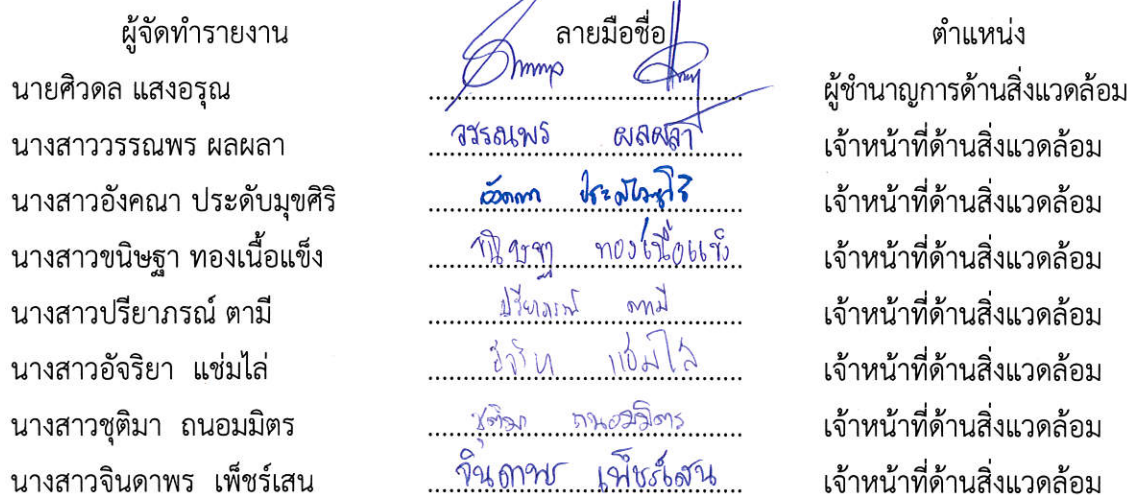 ผู้จัดทำรายงาน ลายมือชื่อ ตำแหน่ง
นายศิวดล แสงอรุณ ผู้ชำนาญการด้านสิ่งแวดล้อม
นางสาววรรณพร ผลผลา วรรณพร ผลผลา เจ้าหน้าที่ด้านสิ่งแวดล้อม
นางสาวอังคณา ประดับมุขศิริ เจ้าหน้าที่ด้านสิ่งแวดล้อม
นางสาวขนิษฐา ทองเนื้อแข็ง ขนิษฐา ทองเนื้อแข็ง เจ้าหน้าที่ด้านสิ่งแวดล้อม
นางสาวปรียาภรณ์ ตามี ปรียาภรณ์ ตามี เจ้าหน้าที่ด้านสิ่งแวดล้อม
นางสาวอัจริยา แช่มไล่ อัจริยา แช่มไล่ เจ้าหน้าที่ด้านสิ่งแวดล้อม
นางสาวชุติมา ถนอมมิตร ชุติมา ถนอมมิตร เจ้าหน้าที่ด้านสิ่งแวดล้อม
นางสาวจินดาพร เพ็ชร์เสน จินดาพร เพ็ชร์เสน เจ้าหน้าที่ด้านสิ่งแวดล้อม